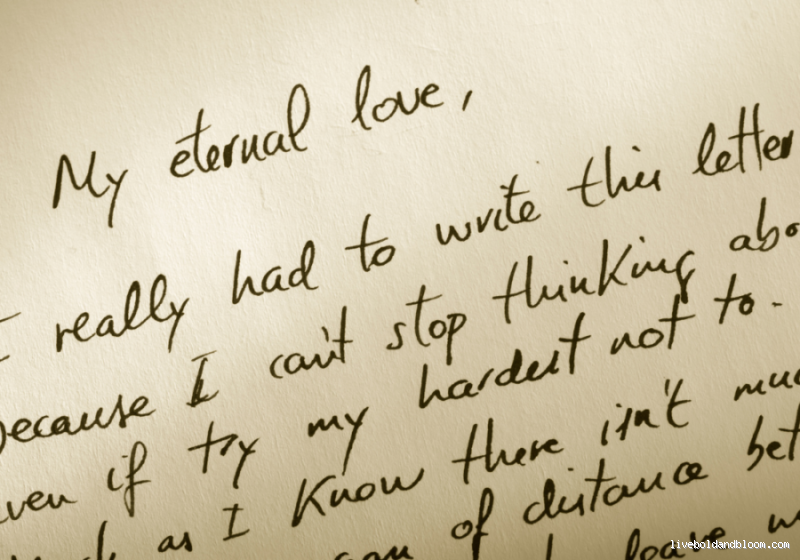 My eternal love,
I really had to write this letter
because I can't stop thinking
even if try my hardest not to.
as I know there isn't
of distance
liveboldandbloom.com